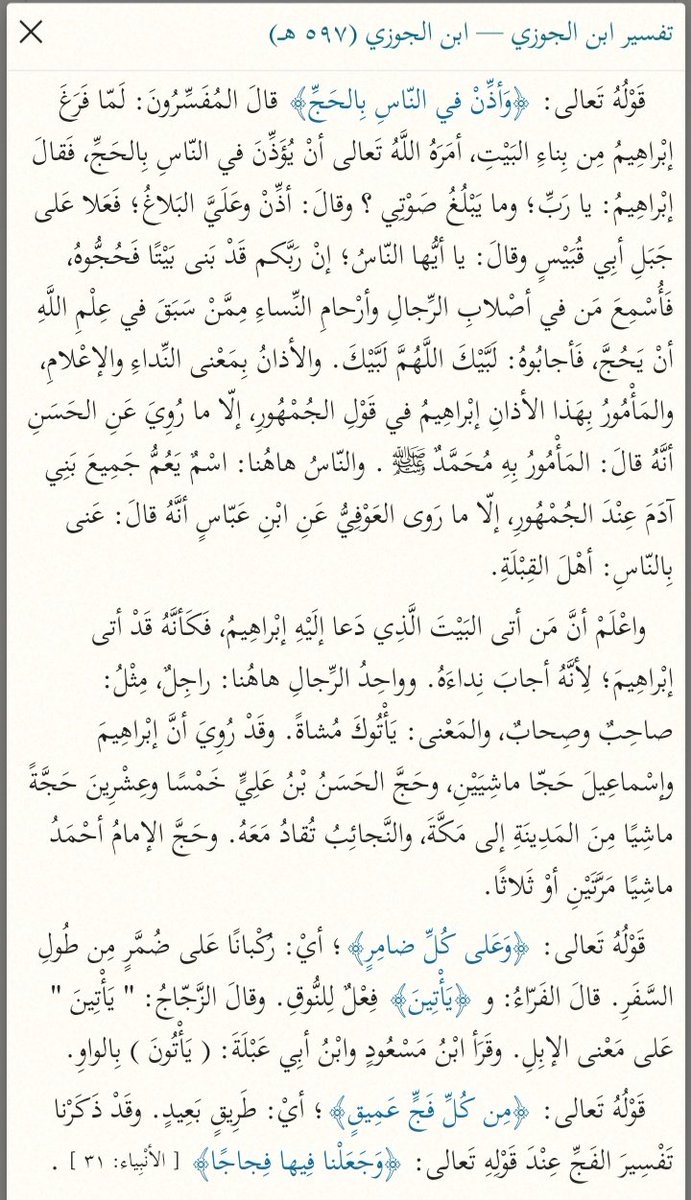 تفسير ابن الجوزي — ابن الجوزي (٥٩٧ هـ)
قَوْلُهُ تَعالى: ﴿وَأذِّنْ في النّاسِ بِالحَجِّ﴾ قالَ المُفَسِّرُونَ: لَمّا فَرَغَ
إبْراهِيمُ مِن بِناءِ البَيْتِ، أمَرَهُ اللَّهُ تَعالى أنْ يُؤَذِّنَ في النّاسِ بِالحَجِّ، فَقالَ
إبْراهِيمُ: يا رَبِّ؛ وما يَبْلُغُ صَوْتِي ؟ وقالَ: أذِّنْ وعَلَيَّ البَلاغُ؛ فَعَلا عَلى
جَبَلِ أبِي قُبَيْسٍ وقالَ: يا أيُّها النّاسُ؛ إنْ رَبَّكم قَدْ بَنى بَيْتًا فَحُجُّوهُ،
فَأُسْمِعَ مَن في أصْلابِ الرِّجالِ وأرْحامِ النِّساءِ مِمَّنْ سَبَقَ في عِلْمِ اللَّهِ
أنْ يَحُجَّ، فَأجابُوهُ: لَبَّيْكَ اللَّهُمَّ لَبَّيْكَ. والأذانُ بِمَعْنى النِّداءِ والإعْلامِ،
والمَأْمُورُ بِهَذا الأذانِ إبْراهِيمُ في قَوْلِ الجُمْهُورِ، إلّا ما رُوِيَ عَنِ الحَسَنِ
أنَّهُ قالَ: المَأْمُورُ بِهِ مُحَمَّدٌ ﷺ . والنّاسُ هاهُنا: اسْمٌ يَعُمُّ جَمِيعَ بَنِي
آدَمَ عِنْدَ الجُمْهُورِ، إلّا ما رَوى العَوْفِيُّ عَنِ ابْنِ عَبّاسٍ أنَّهُ قالَ: عَنى
بِالنّاسِ: أهْلَ القِبْلَةِ.
واعْلَمْ أنَّ مَن أتى البَيْتَ الَّذِي دَعا إلَيْهِ إبْراهِيمُ، فَكَأنَّهُ قَدْ أتى
إبْراهِيمَ؛ لِأنَّهُ أجابَ نِداءَهُ. وواحِدُ الرِّجالِ هاهُنا: راجِلٌ، مِثْلُ:
صاحِبٌ وصِحابٌ، والمَعْنى: يَأْتُوكَ مُشاةً. وقَدْ رُوِيَ أنَّ إبْراهِيمَ
وإسْماعِيلَ حَجّا ماشِيَيْنِ، وحَجَّ الحَسَنُ بْنُ عَلِيٍّ خَمْسًا وعِشْرِينَ حَجَّةً
ماشِيًا مِنَ المَدِينَةِ إلى مَكَّةَ، والنَّجائِبُ تُقادُ مَعَهُ. وحَجَّ الإمامُ أحْمَدُ
ماشِيًا مَرَّتَيْنِ أوْ ثَلاثًا.
قَوْلُهُ تَعالى: ﴿وَعَلى كُلِّ ضامِرٍ﴾ ؛ أيْ: رُكْبانًا عَلى ضُمَّرٍ مِن طُولِ
السَّفَرِ. قالَ الفَرّاءُ: و ﴿يَأْتِينَ﴾ فِعْلٌ لِلنُّوقِ. وقالَ الزَّجّاجُ: " يَأْتِينَ "
عَلى مَعْنى الإبِلِ. وقَرَأ ابْنُ مَسْعُودٍ وابْنُ أبِي عَبْلَةَ: ( يَأْتُونَ ) بِالواوِ.
قَوْلُهُ تَعالى: ﴿مِن كُلِّ فَجٍّ عَمِيقٍ﴾ ؛ أيْ: طَرِيقٍ بَعِيدٍ. وقَدْ ذَكَرْنا
تَفْسِيرَ الفَجِّ عِنْدَ قَوْلِهِ تَعالى: ﴿وَجَعَلْنا فِيها فِجاجًا﴾ [ الأنْبِياء: ٣١ ] .